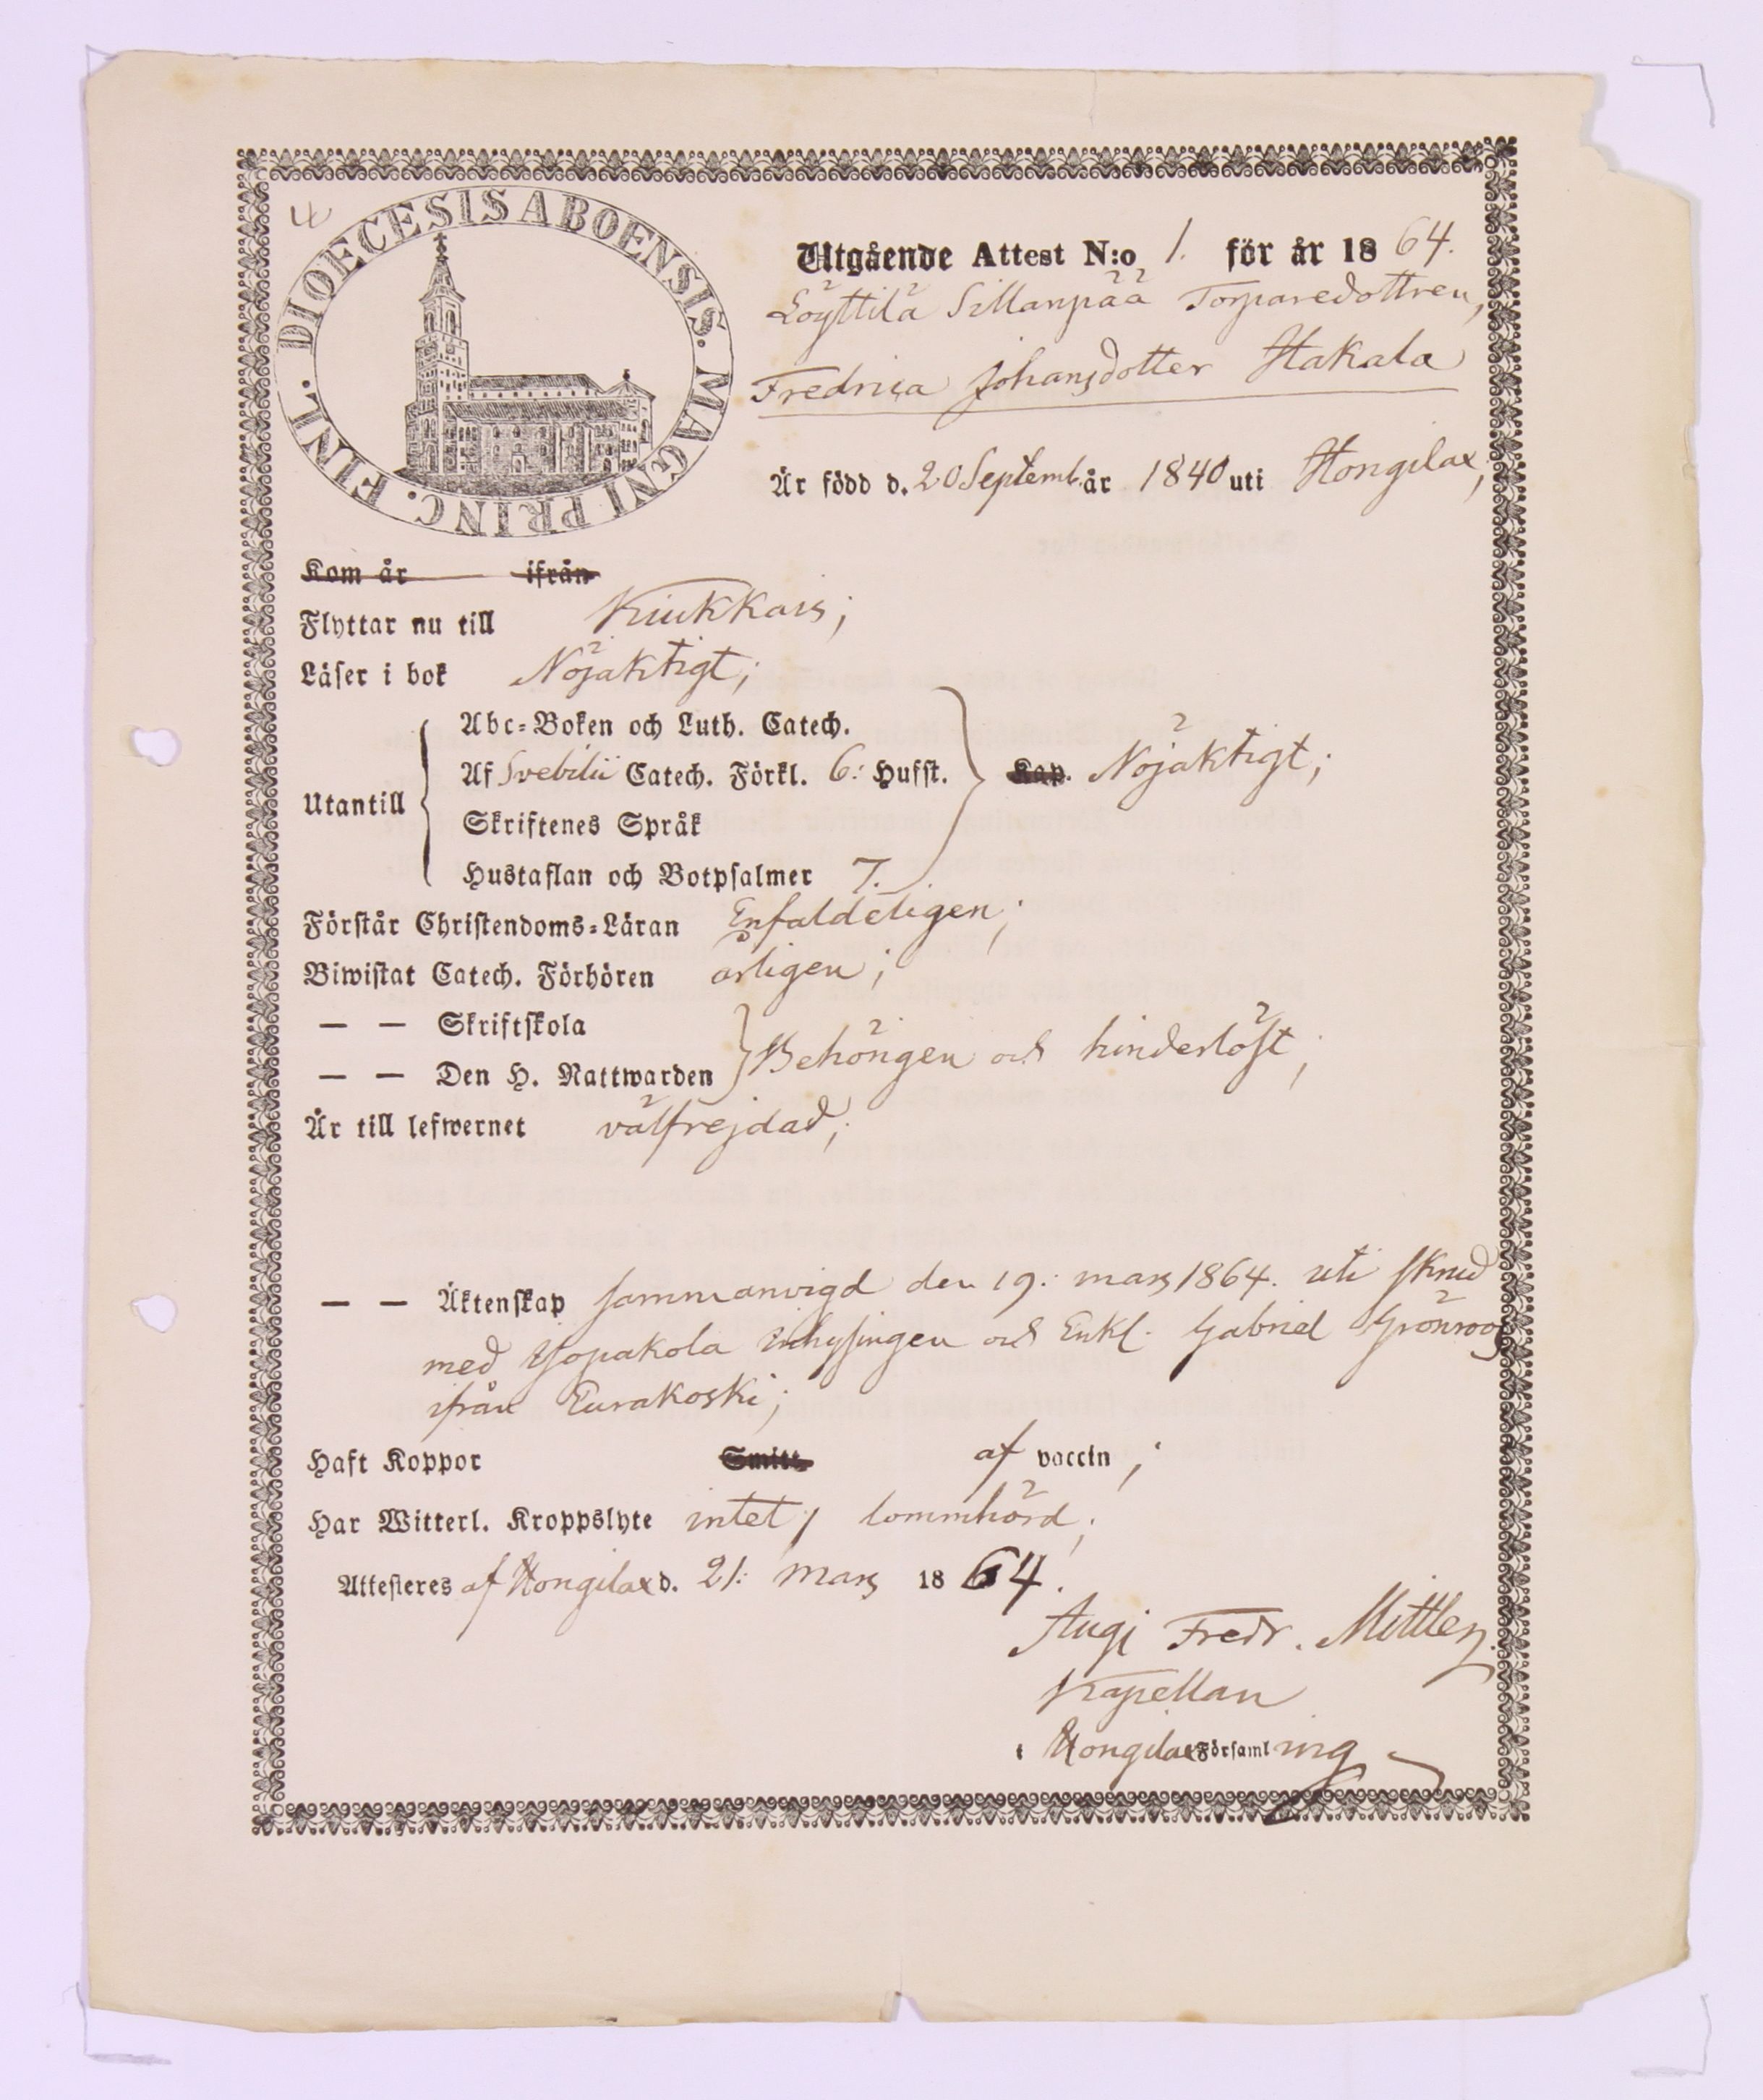 4
DIOECESIS ABOENSIS. MAGNI PRINC. FINL.
Utgående Attest N:o 1. för år 1864.
Löyttilä Sillanpää Torparedottren,
Fredrica Johansdotter Hakala
Är född d. 20 Septemb. år 1840 uti Hongilax,
Kom år ifrån
Flyttar nu till Kiukkais;
Läser i bok Nöjaktigt;
Abc=Boken och Luth. Catech.
Utantill Af Svebilii Catech. Förkl. 6: Hufst. Kap. Nöjaktigt;
Skriftenes Språk
Hustaflan och Botpsalmer 7.
Förstår Christendoms=Läran Enfaldeligen;
Biwistat Catech. Förhören årligen;
— — Skriftskola
— — Den H. Nattwarden Behörigen och hinderlöst;
Är till lefwernet välfrejdad;
— — Äktenskap sammanvigd den 19: mars 1864. uti skrud
med inhysingen och Enkl. Gabriel Grönroos
ifrån Eurakoski;
Haft Koppor Smitt. af vaccin;
Har Witterl. Kroppslyte intet; lommhörd;
Attesteres af Hongilax d. 21: mars 1864.
Fredr.
Kapellan
i Hongilax Församling